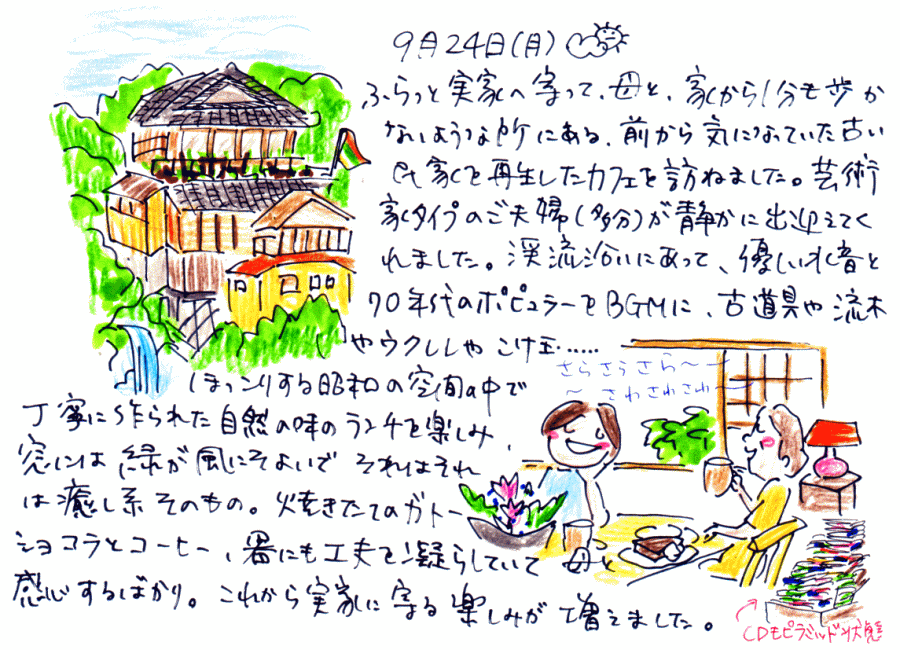 9月24日(月)
ふらっと実家へ寄って、母と、家から1分も歩か
ないような所にある、前から気になっていた古い
民家を再生したカフェを訪ねました。芸術
家タイプのご夫婦(多分)が静かに出迎えてく
れました。渓流沿いにあって、優しい水音と
70年代のポピュラーをBGMに、古道具や流木
やウクレレやこけ玉……
さらさらさら〜
〜さわさわさわ〜
ほっこりする昭和の空間の中で
丁寧に作られた自然の味のランチを楽しみ、
窓には緑が風にそよいで それはそれ
は癒し系そのもの。焼きたてのガトー
ショコラとコーヒー、器にも工夫を凝らしていて 母と
感心するばかり。これから実家に寄る楽しみが増えました。
CDもピラミッド状態